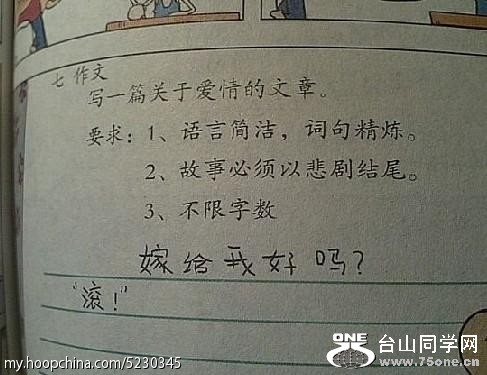 七 作文
写一篇关于爱情的文章。
要求：1、语言简洁，词句精炼。
2、故事必须以悲剧结尾。
3、不限字数
嫁给我好吗？
“滚！”
ONE 台山同学网
www.75one.cn
my.hoopchina.com/5230345